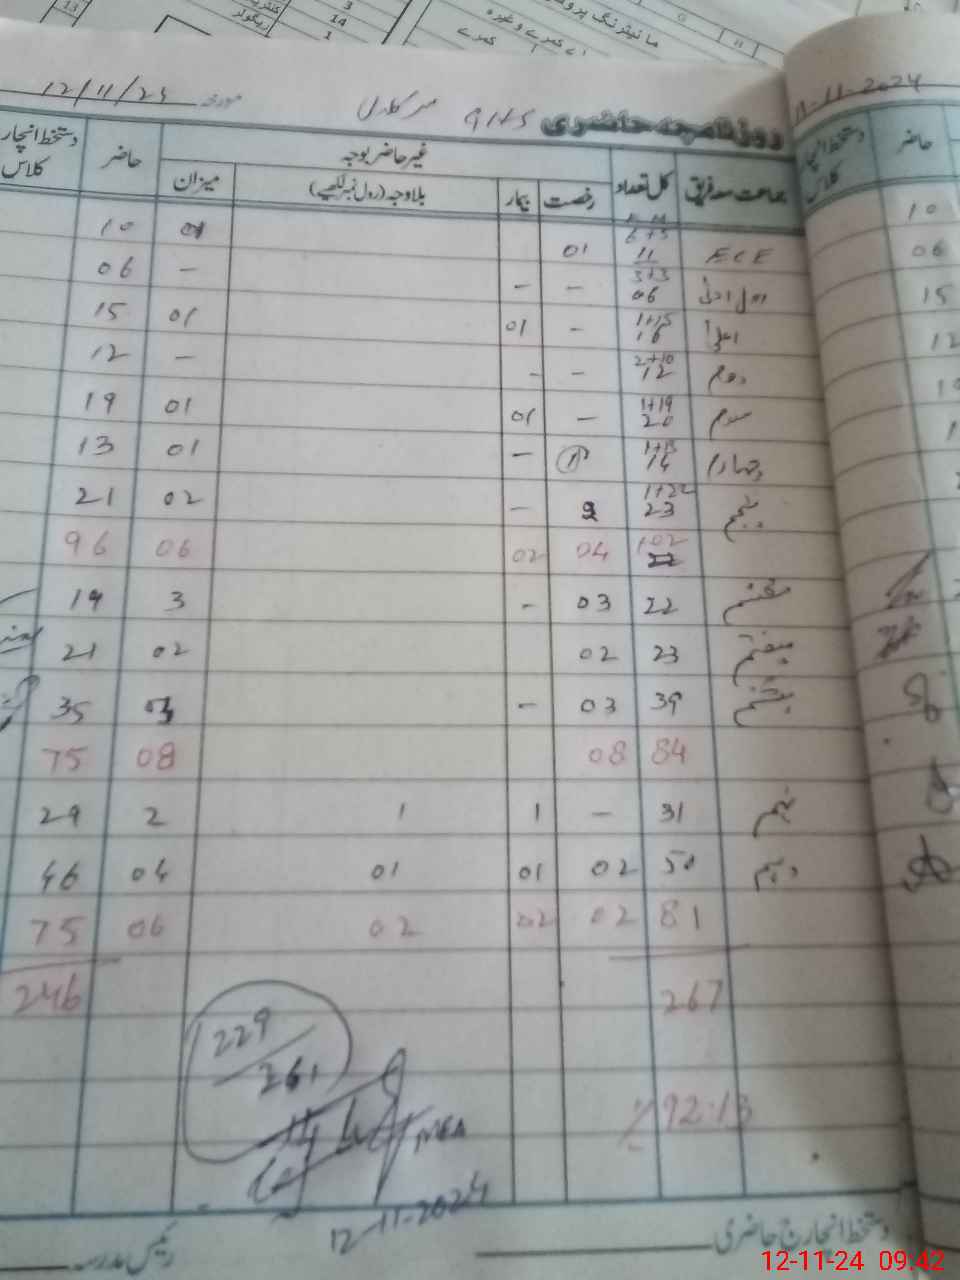 کمرے
اے کمرے وغیرہ
3
14
1
ریگولر
13
12/11/24 مورخہ
روزنامچہ حاضری GHS
11-11-2024
جماعت سہ فریق کل تعداد غیر حاضر بوجہ حاضر دستخط انچارج کلاس
رخصت بیمار بلا وجہ (رول نمبر لکھیے) میزان
حاضر
کلاس
ECE 6+5 11 01 01 10
اول ادنیٰ 3+3 06 – – – 06
اعلیٰ 1+15 16 – 01 01 15
دوم 2+10 12 – - – 12
سوم 1+19 20 – 01 01 19
چہارم 1+13 14 – 01 13
پنجم 1+22 23 2 – 02 21
102 04 02 06 96
ششم 22 03 - 3 19
ہفتم 23 02 02 21
ہشتم 39 03 – 35
84 08 08 75
نہم 31 – 1 1 2 29
دہم 50 02 01 01 04 46
81 02 02 02 06 75
267 246
229
261
% 92.13
MEA
12-11-2024
دستخط انچارج حاضری
رئیس مدرسہ
10
06
15
12
12-11-24 09:42